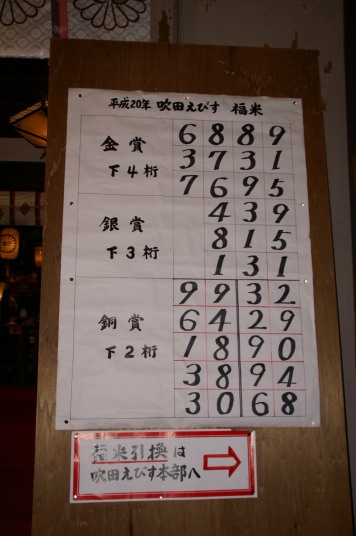 平成20年 吹田えびす 福米
金賞
下4桁
6889
3731
7695
銀賞
下3桁
439
815
131
銅賞
下2桁
99 32
64 29
18 90
38 94
30 68
福米引換は
吹田えびす本部へ